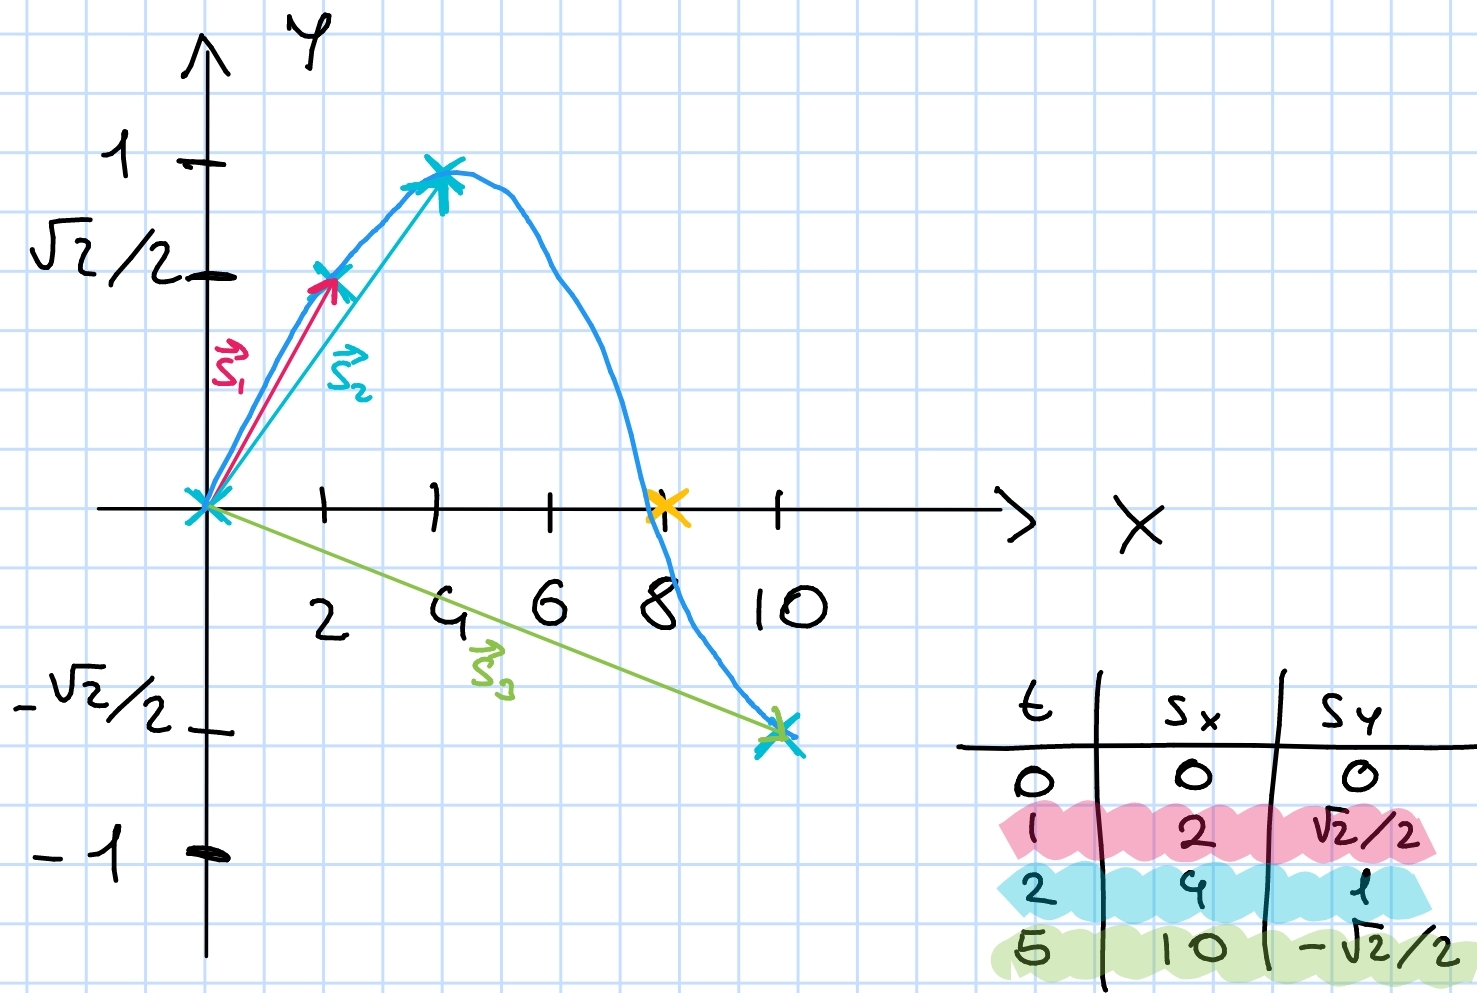 y
1
√2/2
s⃗₁
s⃗₂
x
2 4 6 8 10
s⃗₃
-√2/2
-1
t sx sy
0 0 0
1 2 √2/2
2 4 1
5 10 -√2/2